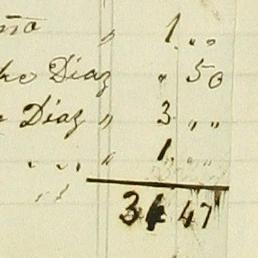 ño " 1 " "
Diaz " 50
Diaz " 3 " "
" " " 1 " "
47